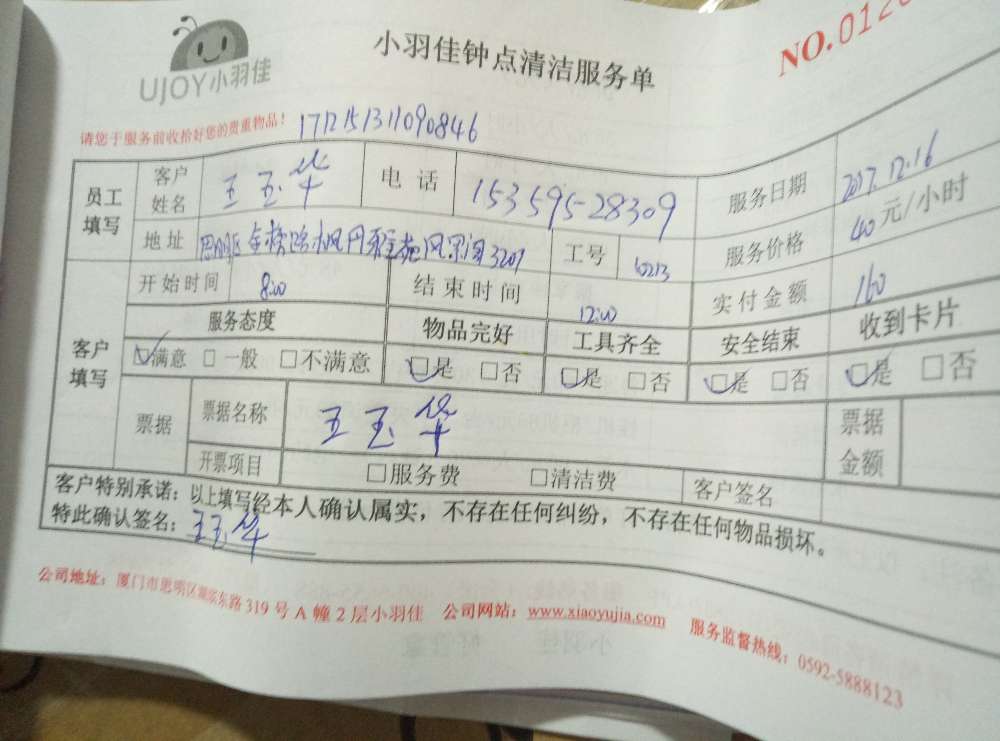 UJOY小羽佳
小羽佳钟点清洁服务单
NO.0126
请您于服务前收拾好您的贵重物品! 1712151311090846
员工填写 客户姓名 王玉华 电话 15359528309 服务日期 2017.12.16
地址 思明区 3207 工号 服务价格 40元/小时
客户填写 开始时间 8:00 结束时间 12:00 实付金额 160
服务态度 物品完好 工具齐全 安全结束 收到卡片
☑满意 □一般 □不满意 ☑是 □否 ☑是 □否 ☑是 □否 ☑是 □否
票据 票据名称 王玉华 票据金额
开票项目 □服务费 □清洁费 客户签名
客户特别承诺:以上填写经本人确认属实,不存在任何纠纷,不存在任何物品损坏。
特此确认签名:王玉华
公司地址:厦门市思明区湖滨东路319号A幢2层小羽佳 公司网站:www.xiaoyujia.com 服务监督热线:0592-5888123